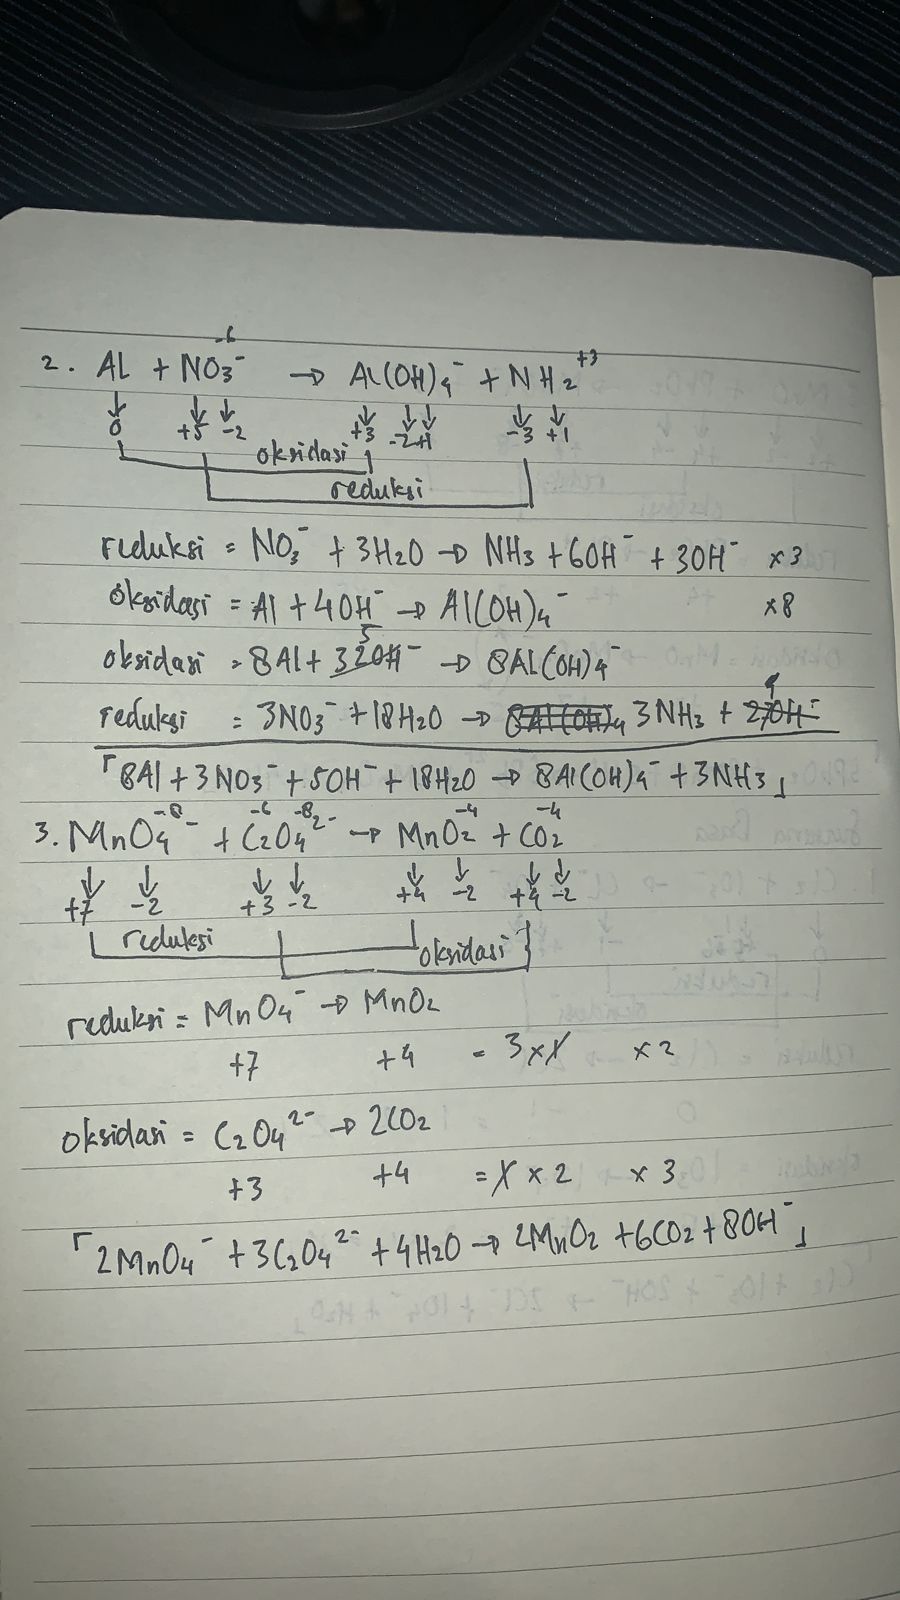 -6 +3
2. Al + NO3⁻ → Al(OH)4⁻ + NH2
↓ ↓ ↓ ↓ ↓ ↓ ↓ ↓
0 +5 -2 +3 -2 +1 -3 +1
oksidasi
reduksi
reduksi = NO3⁻ + 3H2O → NH3 + 6OH⁻ + 3OH⁻ ×3
oksidasi = Al + 4OH⁻ → Al(OH)4⁻ ×8
5
oksidasi = 8Al + 32OH⁻ → 8Al(OH)4⁻
reduksi = 3NO3⁻ + 18H2O → 8Al(OH)4 3NH3 + 27OH⁻
「8Al + 3NO3⁻ + 5OH⁻ + 18H2O → 8Al(OH)4⁻ + 3NH3」
-8 -6 -8 -4 -4
3. MnO4⁻ + C2O4²⁻ → MnO2 + CO2
↓ ↓ ↓ ↓ ↓ ↓ ↓ ↓
+7 -2 +3 -2 +4 -2 +4 -2
reduksi
oksidasi
reduksi = MnO4⁻ → MnO2
+7 +4 = 3 × 1 ×2
oksidasi = C2O4²⁻ → 2CO2
+3 +4 = 1 × 2 ×3
「2MnO4⁻ + 3C2O4²⁻ + 4H2O → 2MnO2 + 6CO2 + 8OH⁻」